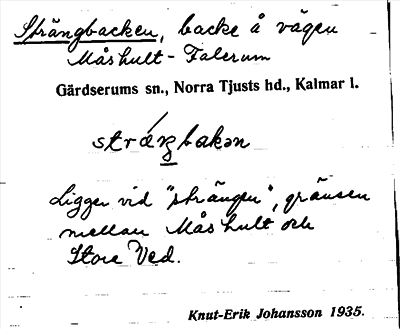 Strängbacken, backe å vägen
Måshult - Falerum
Gärdserums sn., Norra Tjusts hd., Kalmar l.
stráŋbakən
Ligger vid "strängen", gränsen
mellan Måshult och
Stora Ved.
Knut-Erik Johansson 1935.